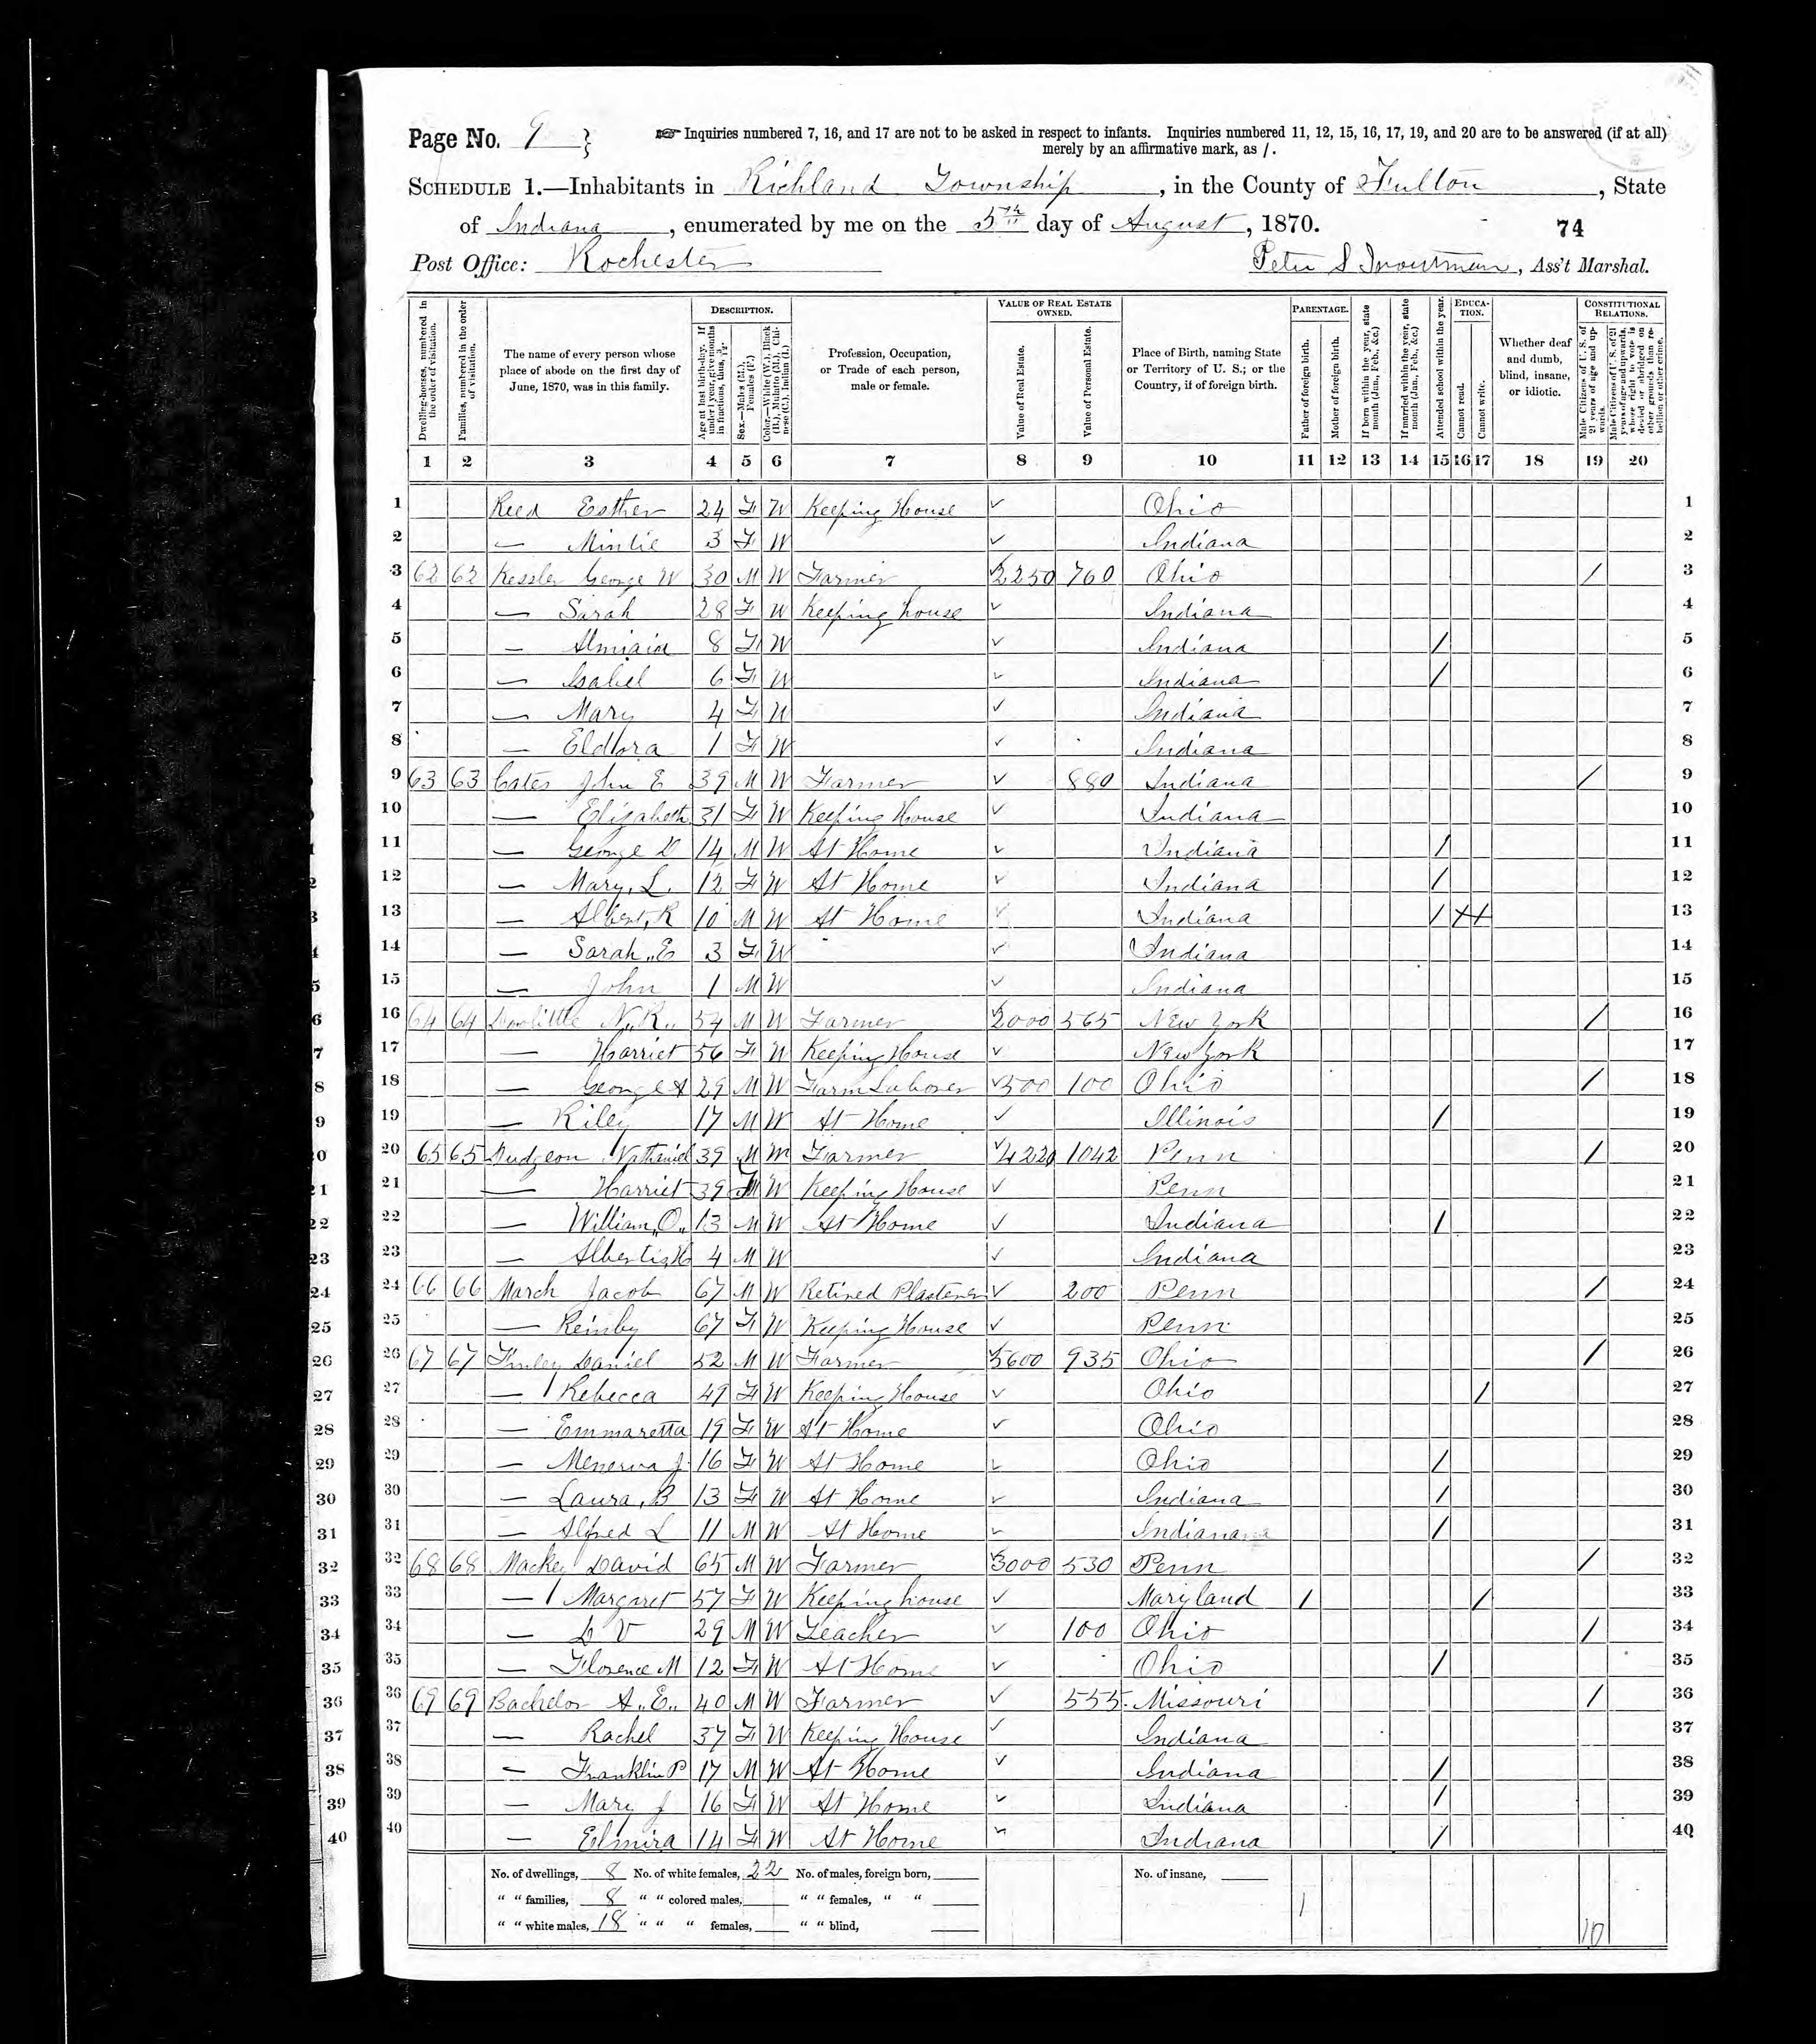 Page No. 9 } ☞ Inquiries numbered 7, 16, and 17 are not to be asked in respect to infants. Inquiries numbered 11, 12, 15, 16, 17, 19, and 20 are to be answered (if at all)
merely by an affirmative mark, as /.
SCHEDULE 1.—Inhabitants in Richland Township, in the County of Fulton, State
of Indiana, enumerated by me on the 5th day of August, 1870. 74
Post Office: Rochester Peter S Troutman, Ass't Marshal.
Dwelling-houses, numbered in the order of visitation.
Families, numbered in the order of visitation.
The name of every person whose place of abode on the first day of June, 1870, was in this family.
DESCRIPTION.
Age at last birth-day. If under 1 year, give months in fractions, thus, 3/12.
Sex.—Males (M.), Females (F.)
Color.—White (W.), Black (B.), Mulatto (M.), Chinese (C.), Indian (I.)
Profession, Occupation, or Trade of each person, male or female.
VALUE OF REAL ESTATE OWNED.
Value of Real Estate.
Value of Personal Estate.
Place of Birth, naming State or Territory of U. S.; or the Country, if of foreign birth.
PARENTAGE.
Father of foreign birth.
Mother of foreign birth.
If born within the year, state month (Jan., Feb., &c.)
If married within the year, state month (Jan., Feb., &c.)
Attended school within the year.
EDUCATION.
Cannot read.
Cannot write.
Whether deaf and dumb, blind, insane, or idiotic.
CONSTITUTIONAL RELATIONS.
Male Citizens of U. S. of 21 years of age and upwards.
Male Citizens of U. S. of 21 years of age and upwards, whose right to vote is denied or abridged on other grounds than rebellion or other crime.
1 2 3 4 5 6 7 8 9 10 11 12 13 14 15 16 17 18 19 20
1 Reed Esther 24 F W Keeping House ✓ Ohio 1
2 — Mintie 3 F W ✓ Indiana 2
3 62 62 Kessler George W 30 M W Farmer 2250 760 Ohio / 3
4 — Sarah 28 F W Keeping house ✓ Indiana 4
5 — 8 F W ✓ Indiana / 5
6 — Isabel 6 F W ✓ Indiana / 6
7 — Mary 4 F W ✓ Indiana 7
8 — Eldora 1 F W ✓ Indiana 8
9 63 63 Cates John E 39 M W Farmer ✓ 880 Indiana / 9
10 — Elizabeth 31 F W Keeping House ✓ Indiana 10
11 — George 14 M W At Home ✓ Indiana / 11
12 — Mary, L. 12 F W At Home ✓ Indiana / 12
13 — Albert, R 10 M W At Home ✓ Indiana / 13
14 — Sarah, E 3 F W ✓ Indiana 14
15 — John 1 M W ✓ Indiana 15
16 64 64 Doolittle N. R. 54 M W Farmer 2000 565 New York / 16
17 — Harriet 56 F W Keeping House ✓ New York 17
18 — George A 29 M W Farm Laborer ✓ 500 100 Ohio / 18
19 — Riley 17 M W At Home ✓ Illinois / 19
20 65 65 Dudgeon Nathaniel 39 M Farmer ✓ 4220 1042 Penn / 20
21 — Harriet 39 F W Keeping House ✓ Penn 21
22 — William, O. 13 M W At Home ✓ Indiana / 22
23 — 4 M W ✓ Indiana 23
24 66 66 March Jacob 67 M W Retired Plasterer ✓ 200 Penn / 24
25 — 67 F W Keeping House ✓ Penn 25
26 67 67 Finley Daniel 52 M W Farmer 5600 935 Ohio / 26
27 — Rebecca 49 F W Keeping House ✓ Ohio / 27
28 — Emmaretta 19 F W At Home ✓ Ohio 28
29 — Menerva J. 16 F W At Home ✓ Ohio / 29
30 — Laura, B 13 F W At Home ✓ Indiana / 30
31 — Alfred L 11 M W At Home ✓ Indianana / 31
32 68 68 Mackey David 65 M W Farmer 3000 530 Penn / 32
33 — Margaret 57 F W Keeping house ✓ Maryland / / 33
34 — D V 29 M W Teacher ✓ 100 Ohio / 34
35 — Florence M 12 F W At Home ✓ Ohio / 35
36 69 69 Bachelor A. E. 40 M W Farmer ✓ 555 Missouri / 36
37 — Rachel 37 F W Keeping House ✓ Indiana 37
38 — Franklin P 17 M W At Home ✓ Indiana / 38
39 — Mary J 16 F W At Home ✓ Indiana / 39
40 — Elmira 14 F W At Home ✓ Indiana / 40
No. of dwellings, 8 No. of white females, 22 No. of males, foreign born, No. of insane,
" " families, 8 " " colored males, " " females, " " /
" " white males, 18 " " " females, " " blind, 10